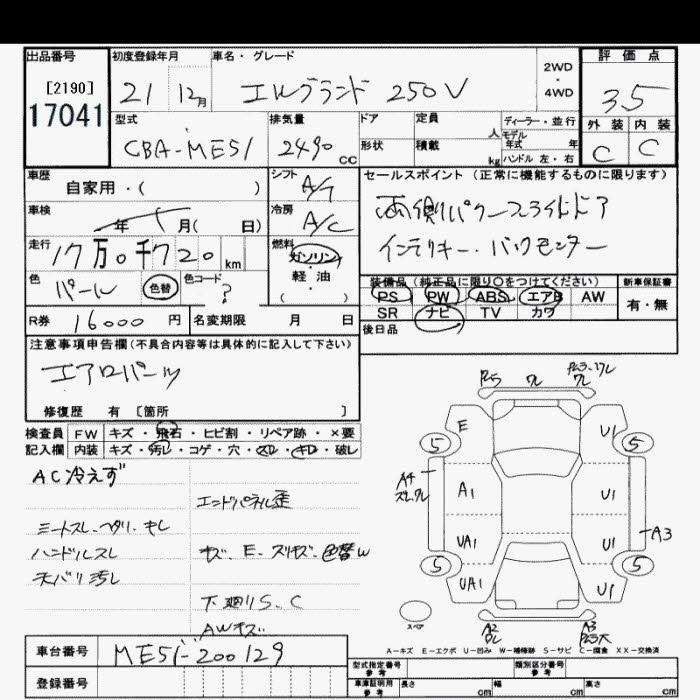 出品番号 初度登録年月 車名・グレード 2WD・4WD 評価点
[2190]
17041
21 12月 エルグランド 250V 3.5
型式 排気量 ドア 定員 人 ディーラー・並行 外装 内装
モデル年式 年
CBA-ME51 2490 CC 形状 積載 kg ハンドル 左・右 C C
車歴 シフト セールスポイント(正常に機能するものに限ります)
自家用・( ) A/T
両側パワースライドドア
車検 冷房
年 月( 日) A/C
インテリキー・バックモニター
走行 17万0千720km 燃料
ガソリン・軽油・( )
色 パール 色替 色コード ?
装備品(純正品に限り○をつけてください) 新車保証書
PS PW ABS エアB AW 有・無
SR ナビ TV カワ
R券 16000円 名変期限 月 日 後日品
注意事項申告欄(不具合内容等は具体的に記入して下さい)
エアロパーツ
修復歴 有 [箇所 ]
検査員 FW キズ・飛石・ヒビ割・リペア跡・×要
記入欄 内装 キズ・汚レ・コゲ・穴・スレ・キレ・破レ
AC冷えず
エンドパネル歪
シートスレ、ヘタリ、キレ
ハンドルスレ キズ、E、スリキズ、色替W
天バリ汚レ
下廻りS、C
AWキズ
E U1
5 5
A4 A1 U1
UA1 U1 A3
5 5
UA1 U1
スペア
A2 A3
A-キズ E-エクボ U-凹み W-補修跡 S-サビ C-腐食 XX-交換済
車台番号 ME51-200129
型式指定番号 参考 類別区分番号 参考
登録番号
車庫証明用 参考 長さ cm 幅 cm 高さ cm